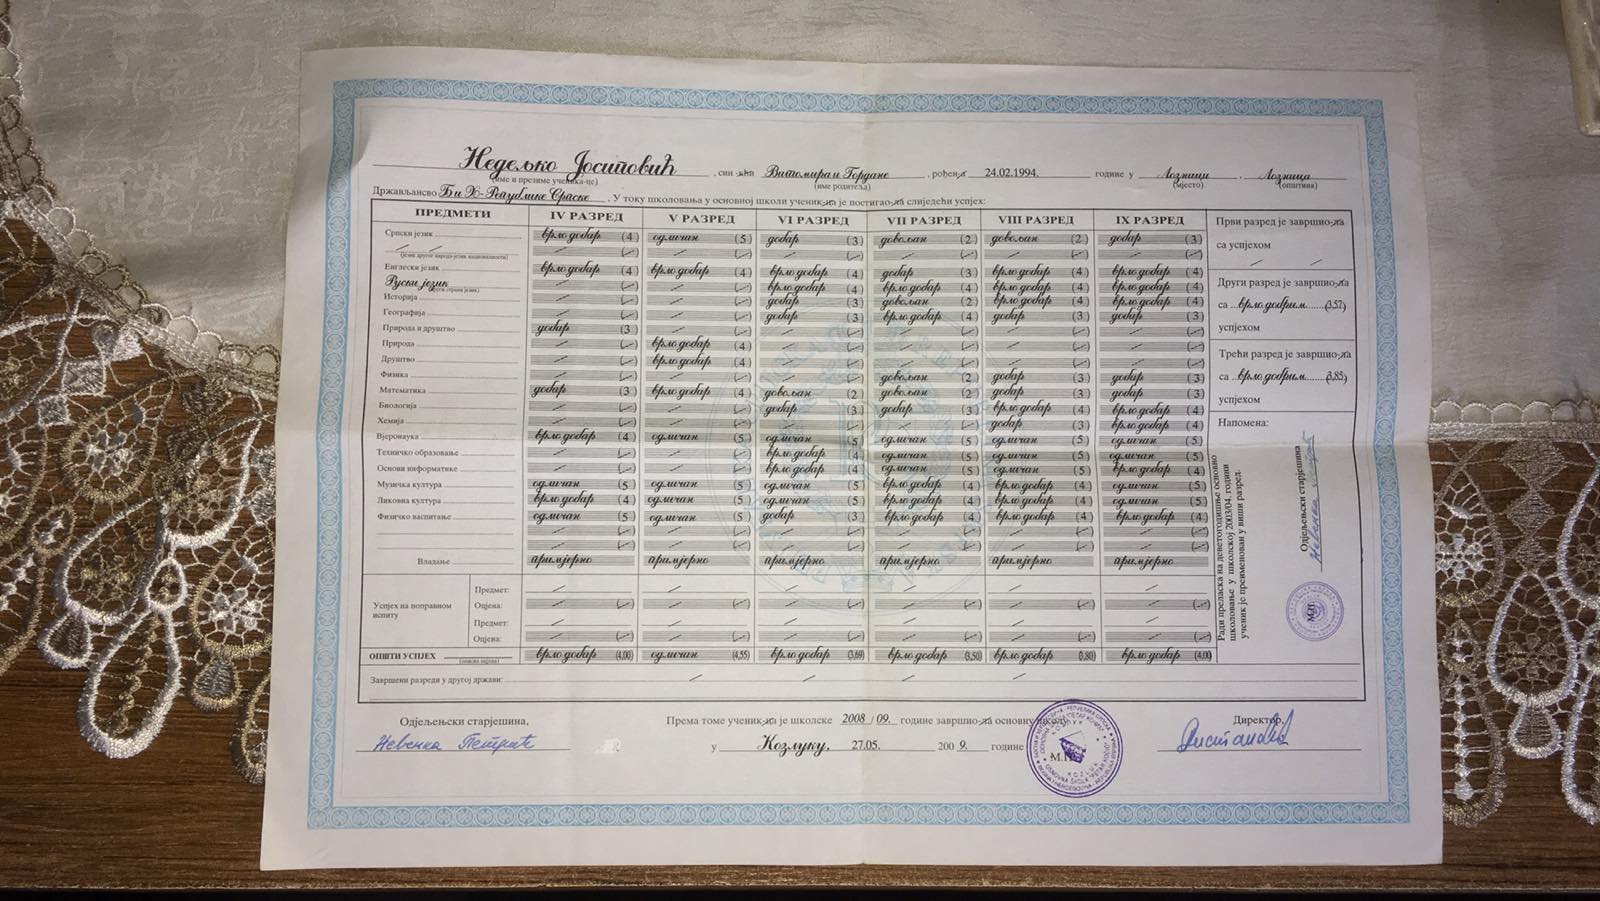 Недељко Јосиповић , син-кћи Витомира и Гордане , рођен-а 24.02.1994. године у Лозници , Лозница
(име и презиме ученика-це) (име родитеља) (мјесто) (општина)
Држављанство БиХ-Републике Српске . У току школовања у основној школи ученик-ца је постигао-ла слиједећи успјех:
ПРЕДМЕТИ IV РАЗРЕД V РАЗРЕД VI РАЗРЕД VII РАЗРЕД VIII РАЗРЕД IX РАЗРЕД
Српски језик врло добар (4) одличан (5) добар (3) довољан (2) довољан (2) добар (3)
(језик другог народа-језик националности) / (-) / (-) / (-) / (-) / (-) / (-)
Енглески језик врло добар (4) врло добар (4) врло добар (4) добар (3) врло добар (4) врло добар (4)
Руски језик / (-) / (-) врло добар (4) врло добар (4) врло добар (4) врло добар (4)
(други страни језик)
Историја / (-) / (-) добар (3) довољан (2) врло добар (4) врло добар (4)
Географија / (-) / (-) добар (3) врло добар (4) добар (3) добар (3)
Природа и друштво добар (3) / (-) / (-) / (-) / (-) / (-)
Природа / (-) врло добар (4) / (-) / (-) / (-) / (-)
Друштво / (-) врло добар (4) / (-) / (-) / (-) / (-)
Физика / (-) / (-) / (-) довољан (2) добар (3) добар (3)
Математика добар (3) врло добар (4) довољан (2) довољан (2) добар (3) добар (3)
Биологија / (-) / (-) добар (3) добар (3) врло добар (4) врло добар (4)
Хемија / (-) / (-) / (-) / (-) добар (3) врло добар (4)
Вјеронаука врло добар (4) одличан (5) одличан (5) одличан (5) одличан (5) одличан (5)
Техничко образовање / (-) / (-) врло добар (4) одличан (5) одличан (5) одличан (5)
Основи информатике / (-) / (-) врло добар (4) одличан (5) одличан (5) врло добар (4)
Музичка култура одличан (5) одличан (5) одличан (5) врло добар (4) врло добар (4) одличан (5)
Ликовна култура врло добар (4) одличан (5) одличан (5) врло добар (4) врло добар (4) одличан (5)
Физичко васпитање одличан (5) одличан (5) добар (3) врло добар (4) врло добар (4) врло добар (4)
/ (-) / (-) / (-) / (-) / (-) / (-)
/ (-) / (-) / (-) / (-) / (-) / (-)
Владање примјерно примјерно примјерно примјерно примјерно примјерно
Успјех на поправном испиту
Предмет: / / / / / /
Оцјена: / (-) / (-) / (-) / (-) / (-) / (-)
Предмет: / / / / / /
Оцјена: / (-) / (-) / (-) / (-) / (-) / (-)
ОПШТИ УСПЈЕХ врло добар (4,00) одличан (4,55) врло добар (3,69) врло добар (3,50) врло добар (3,80) врло добар (4,00)
(описна оцјена)
Завршени разреди у другој држави: / / / /
Први разред је завршио-ла
са успјехом
/ /
Други разред је завршио-ла
са врло добрим (3,57)
успјехом
Трећи разред је завршио-ла
са врло добрим (3,85)
успјехом
Напомена:
Ради преласка на деветогодишње основно
школовање у школској 2003/04. години
ученик је преименован у виши разред.
Одјељењски старјешина
М.П.
Одјељењски старјешина,
Невенка Петрић
Према томе ученик-ца је школске 2008/09. године завршио-ла основну школу
у Козлуку, 27.05. 2009. године
М.П.
Директор,